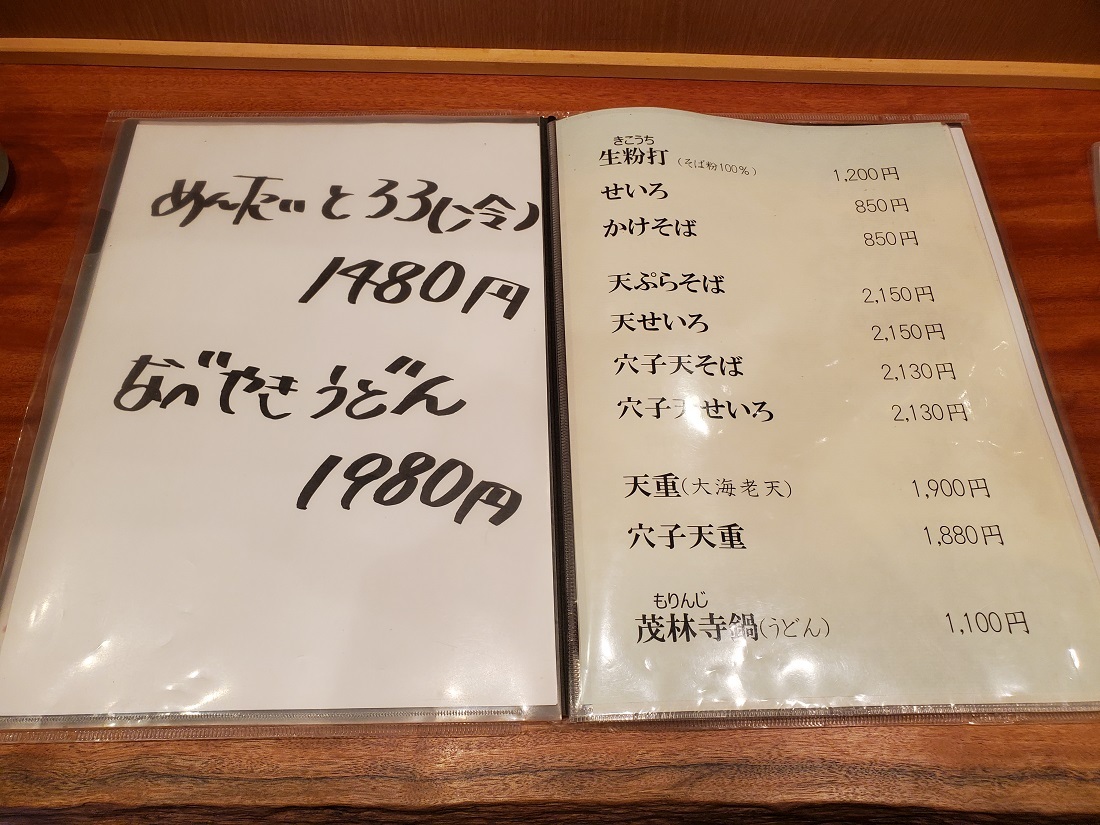 めんたいとろろ(冷)
1480円
なべやきうどん
1980円
きこうち
生粉打(そば粉100%) 1,200円
せいろ 850円
かけそば 850円
天ぷらそば 2,150円
天せいろ 2,150円
穴子天そば 2,130円
穴子天せいろ 2,130円
天重(大海老天) 1,900円
穴子天重 1,880円
もりんじ
茂林寺鍋(うどん) 1,100円